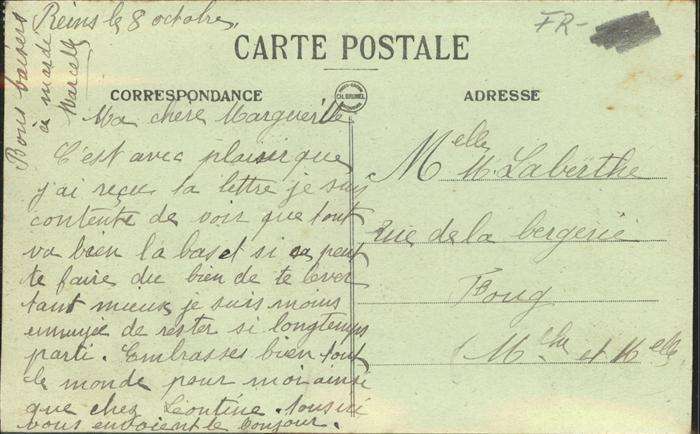 Reins le 8 octobre,
Bons baisers
a mardi
Marcelle
FR-
CARTE POSTALE
CORRESPONDANCE
CH. BRUNEL
ADRESSE
Ma chère Marguerite
C'est avec plaisir que
j'ai reçu ta lettre je suis
contente de voir que tout
va bien la bas et si ca peut
te faire du bien de te lever
tant mieux je suis moins
ennuyée de rester si longtemps
parti. Embrasses bien tout
le monde pour moi ainse
que chez Léontine. tous ici
vous envoient le bonjour.
Melle M. Laberthe
rue de la bergerie
Foug
(Mthe et Melle)